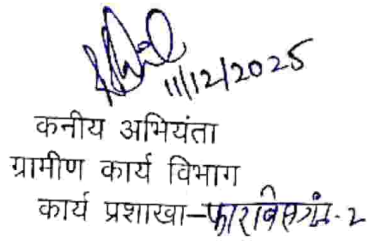 11/12/2025
कनीय अभियंता
ग्रामीण कार्य विभाग
कार्य प्रशाखा-फारबिसगंज-2